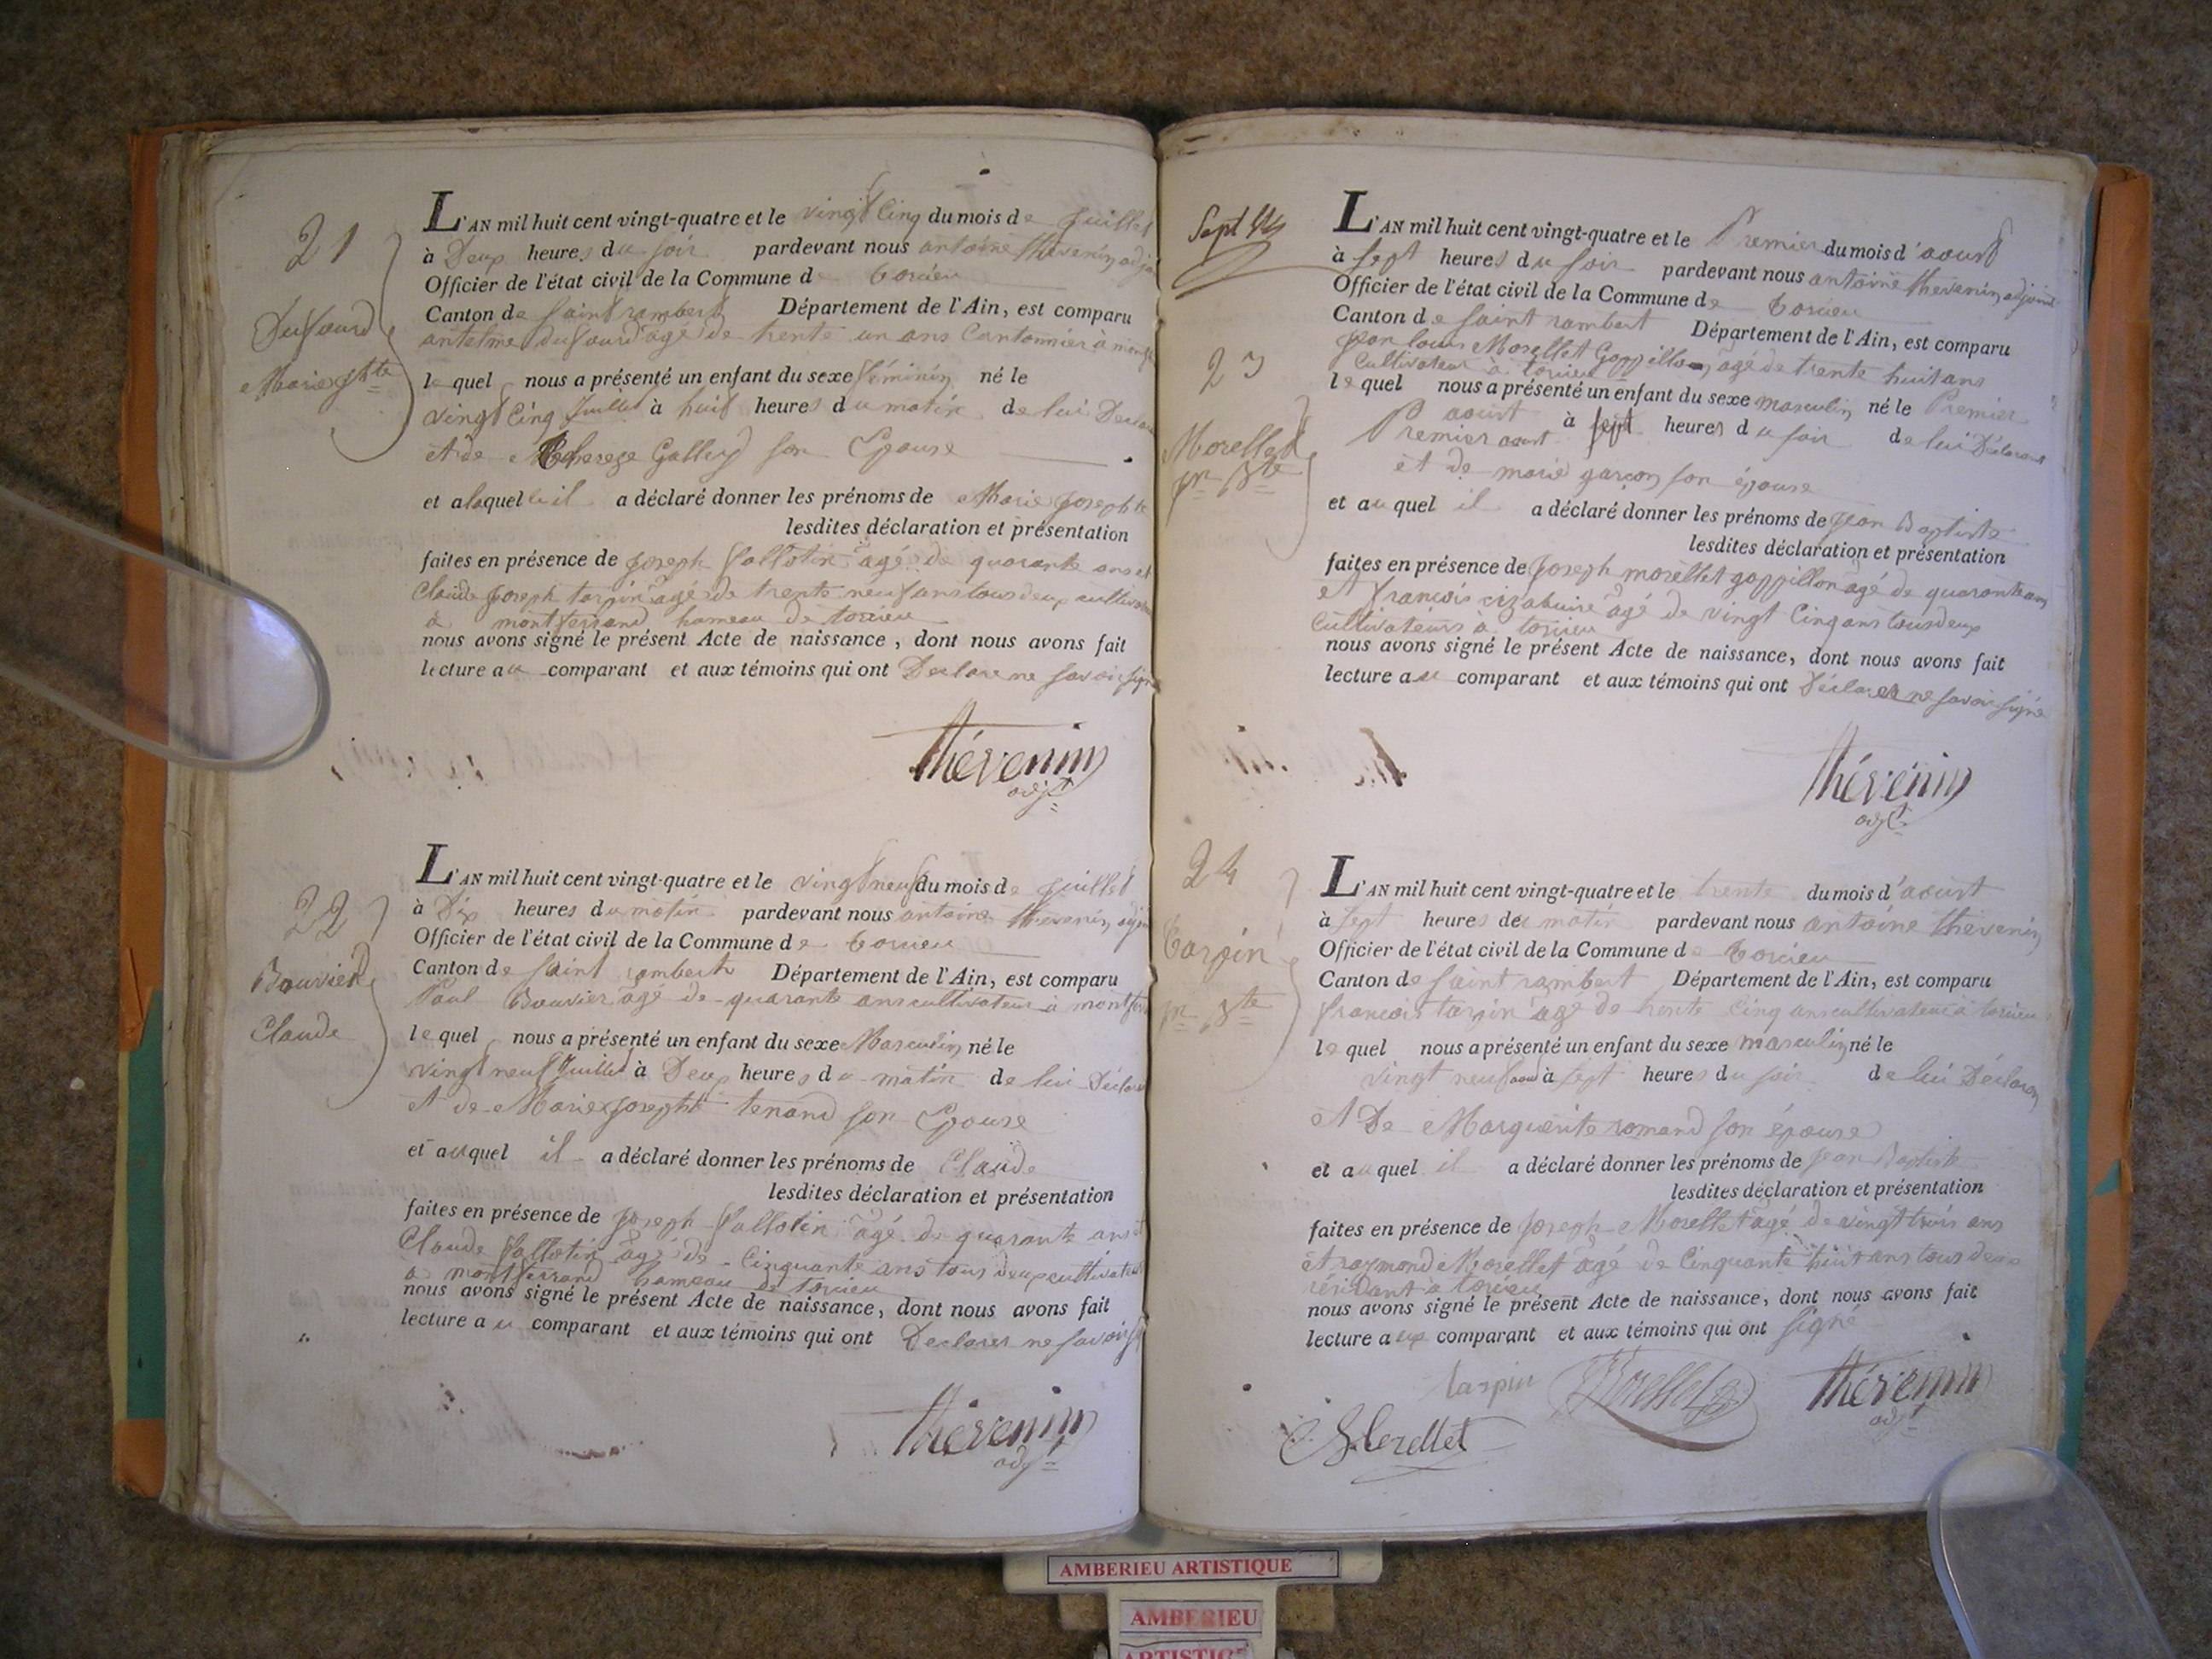 21
Dufourd
Marie Jphte
L'AN mil huit cent vingt-quatre et le vingt Cinq du mois de Juillet
à Deux heures du soir pardevant nous antoine thevenin adj
Officier de l'état civil de la Commune de torcieu
Canton de saint rambert Département de l'Ain, est comparu
antelme dufourd agé de trente un ans Cantonnier à
le quel nous a présenté un enfant du sexe féminin né le
vingt Cinq Juillet à huit heures du matin de lui Declar
et de therese Galley son Epouse
et a laquelle il a déclaré donner les prénoms de Marie Josephte
lesdites déclaration et présentation
faites en présence de Joseph Vallotin agé de quarante ans et
Claude Joseph tarpin agé de trente neuf ans tous deux cultivat
a montferrand hameau de torcieu
nous avons signé le présent Acte de naissance, dont nous avons fait
lecture au comparant et aux témoins qui ont Declare ne savoir signé
thévenin
adjt
22
Bouvier
Claude
L'AN mil huit cent vingt-quatre et le vingt neuf du mois de Juillet
à Dix heures du matin pardevant nous antoine thevenin adj
Officier de l'état civil de la Commune de torcieu
Canton de saint rambert Département de l'Ain, est comparu
Paul Bouvier agé de quarante ans cultivateur a montfer
le quel nous a présenté un enfant du sexe Masculin né le
vingt neuf Juillet à Deux heures du matin de lui Declar
et de Marie Josephte tenand son Epouse
et auquel il a déclaré donner les prénoms de Claude
lesdites déclaration et présentation
faites en présence de Joseph Vallotin agé de quarante ans et
Claude Vallotin agé de Cinquante ans tous deux cultivat
a montferrand hameau de torcieu
nous avons signé le présent Acte de naissance, dont nous avons fait
lecture au comparant et aux témoins qui ont Declarer ne savoir
thévenin
adjt
23
Morellet
jn Bte
L'AN mil huit cent vingt-quatre et le Premier du mois d'aoust
à sept heures du soir pardevant nous antoine thevenin adjoint
Officier de l'état civil de la Commune de torcieu
Canton de saint rambert Département de l'Ain, est comparu
jean louis Morellet Goppillon agé de trente huit ans
Cultivateur a torcieu
le quel nous a présenté un enfant du sexe masculin né le Premier
aoust
Premier aout à sept heures du soir de lui Déclarant
et de marie garçon son épouse
et au quel il a déclaré donner les prénoms de jean Baptiste
lesdites déclaration et présentation
faites en présence de Joseph morellet goppillon agé de quarante ans
et françois agé de vingt Cinq ans tous deux
Cultivateurs a torcieu
nous avons signé le présent Acte de naissance, dont nous avons fait
lecture au comparant et aux témoins qui ont Déclarer ne savoir signé
thévenin
adjt
24
tarpin
jn Bte
L'AN mil huit cent vingt-quatre et le trente du mois d'aoust
à sept heures du matin pardevant nous antoine thevenin
Officier de l'état civil de la Commune de torcieu
Canton de saint rambert Département de l'Ain, est comparu
francois tarpin agé de trente Cinq ans cultivateur a torcieu
le quel nous a présenté un enfant du sexe masculin né le
vingt neuf aout à sept heures du soir de lui Déclaran
et De Marguerite romand son épouse
et au quel il a déclaré donner les prénoms de jean Baptiste
lesdites déclaration et présentation
faites en présence de Joseph Morellet agé de vingt trois ans
et raymond Morellet agé de Cinquante huit ans tous deux
résidant a torcieu
nous avons signé le présent Acte de naissance, dont nous avons fait
lecture aux comparant et aux témoins qui ont signé
tarpin Morellet thévenin
adjt
AMBERIEU ARTISTIQUE
AMBERIEU
ARTISTIQ